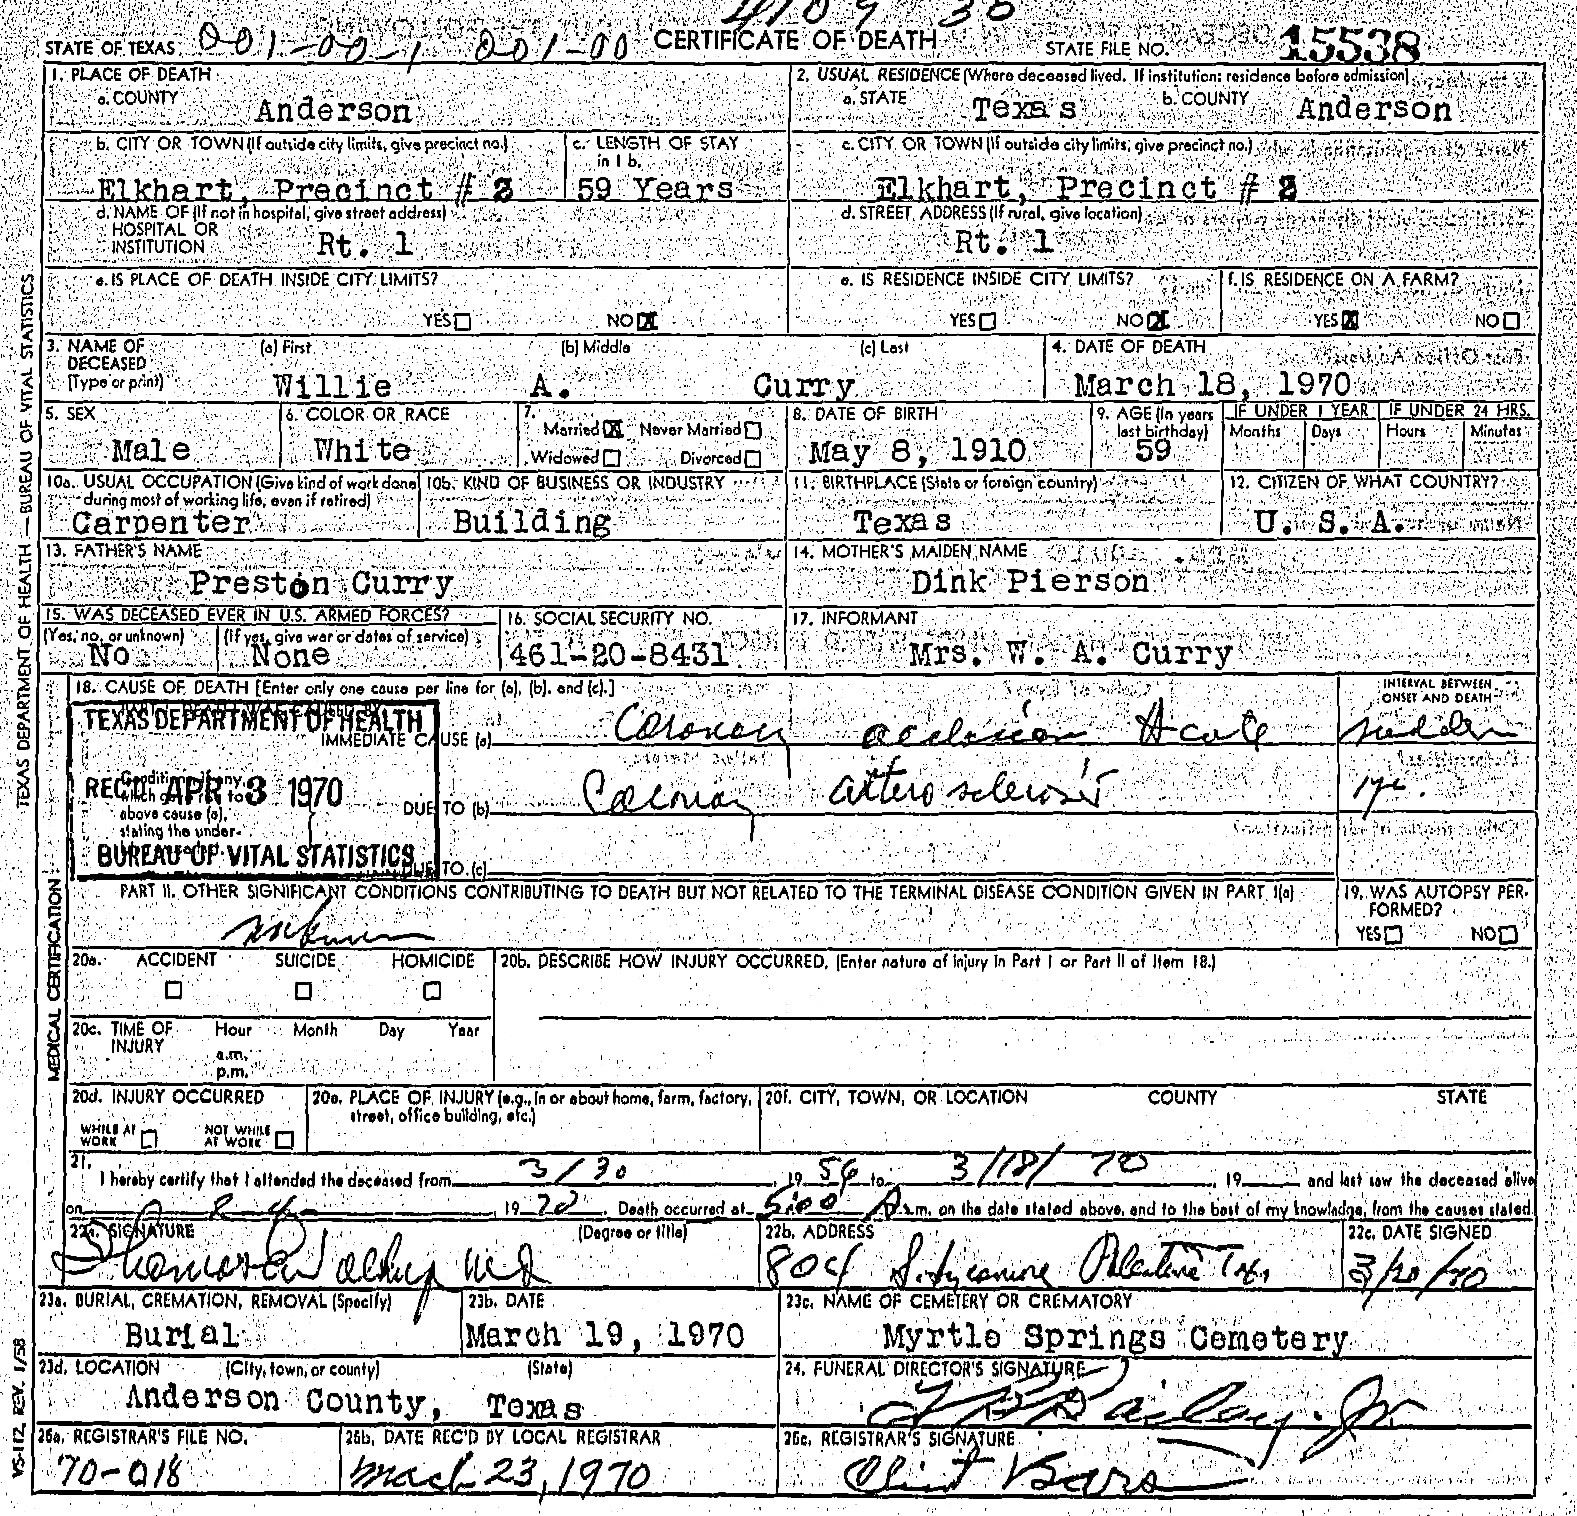 4109 30
STATE OF TEXAS 001-00-1 001-00 CERTIFICATE OF DEATH STATE FILE NO. 15538
1. PLACE OF DEATH
a. COUNTY Anderson
2. USUAL RESIDENCE (Where deceased lived. If institution: residence before admission)
a. STATE Texas b. COUNTY Anderson
b. CITY OR TOWN (If outside city limits, give precinct no.)
Elkhart, Precinct # 2
c. LENGTH OF STAY in 1 b.
59 Years
c. CITY OR TOWN (If outside city limits, give precinct no.)
Elkhart, Precinct # 2
d. NAME OF (If not in hospital, give street address)
HOSPITAL OR
INSTITUTION Rt. 1
d. STREET ADDRESS (If rural, give location)
Rt. 1
e. IS PLACE OF DEATH INSIDE CITY LIMITS?
YES NO X
e. IS RESIDENCE INSIDE CITY LIMITS?
YES NO X
f. IS RESIDENCE ON A FARM?
YES X NO
3. NAME OF DECEASED (Type or print)
(a) First (b) Middle (c) Last
Willie A. Curry
4. DATE OF DEATH
March 18, 1970
5. SEX
Male
6. COLOR OR RACE
White
7.
Married X Never Married
Widowed Divorced
8. DATE OF BIRTH
May 8, 1910
9. AGE (In years last birthday)
59
IF UNDER 1 YEAR
Months Days
IF UNDER 24 HRS.
Hours Minutes
10a. USUAL OCCUPATION (Give kind of work done during most of working life, even if retired)
Carpenter
10b. KIND OF BUSINESS OR INDUSTRY
Building
11. BIRTHPLACE (State or foreign country)
Texas
12. CITIZEN OF WHAT COUNTRY?
U. S. A.
13. FATHER'S NAME
Preston Curry
14. MOTHER'S MAIDEN NAME
Dink Pierson
15. WAS DECEASED EVER IN U.S. ARMED FORCES?
(Yes, no, or unknown) (If yes, give war or dates of service)
No None
16. SOCIAL SECURITY NO.
461-20-8431
17. INFORMANT
Mrs. W. A. Curry
18. CAUSE OF DEATH [Enter only one cause per line for (a), (b), and (c).]
INTERVAL BETWEEN ONSET AND DEATH
TEXAS DEPARTMENT OF HEALTH
IMMEDIATE CAUSE (a) Coronary occlusion Acute sudden
Conditions, if any, which gave rise to above cause (a), stating the under-
REC'D APR 3 1970
DUE TO (b) Coronary arterosclerosis
BUREAU OF VITAL STATISTICS
DUE TO (c)
PART II. OTHER SIGNIFICANT CONDITIONS CONTRIBUTING TO DEATH BUT NOT RELATED TO THE TERMINAL DISEASE CONDITION GIVEN IN PART I(a)
unknown
19. WAS AUTOPSY PERFORMED?
YES NO
20a. ACCIDENT SUICIDE HOMICIDE
20b. DESCRIBE HOW INJURY OCCURRED. (Enter nature of injury in Part I or Part II of Item 18.)
20c. TIME OF INJURY Hour Month Day Year
a.m.
p.m.
20d. INJURY OCCURRED
WHILE AT WORK NOT WHILE AT WORK
20e. PLACE OF INJURY (e.g., in or about home, farm, factory, street, office building, etc.)
20f. CITY, TOWN, OR LOCATION COUNTY STATE
21.
I hereby certify that I attended the deceased from 3/30, 19 56 to 3/18/70, 19 and last saw the deceased alive
on 19 70. Death occurred at 5:00 A.m. on the date stated above, and to the best of my knowledge, from the causes stated.
22a. SIGNATURE (Degree or title)
MD
22b. ADDRESS
804 S. Sycamore Palestine Tex
22c. DATE SIGNED
3/20/70
23a. BURIAL, CREMATION, REMOVAL (Specify)
Burial
23b. DATE
March 19, 1970
23c. NAME OF CEMETERY OR CREMATORY
Myrtle Springs Cemetery
23d. LOCATION (City, town, or county) (State)
Anderson County, Texas
24. FUNERAL DIRECTOR'S SIGNATURE
Bailey Jr
25a. REGISTRAR'S FILE NO.
70-018
25b. DATE REC'D BY LOCAL REGISTRAR
March 23, 1970
25c. REGISTRAR'S SIGNATURE
Clint
TEXAS DEPARTMENT OF HEALTH — BUREAU OF VITAL STATISTICS
MEDICAL CERTIFICATION
VS-112 REV. 1/58